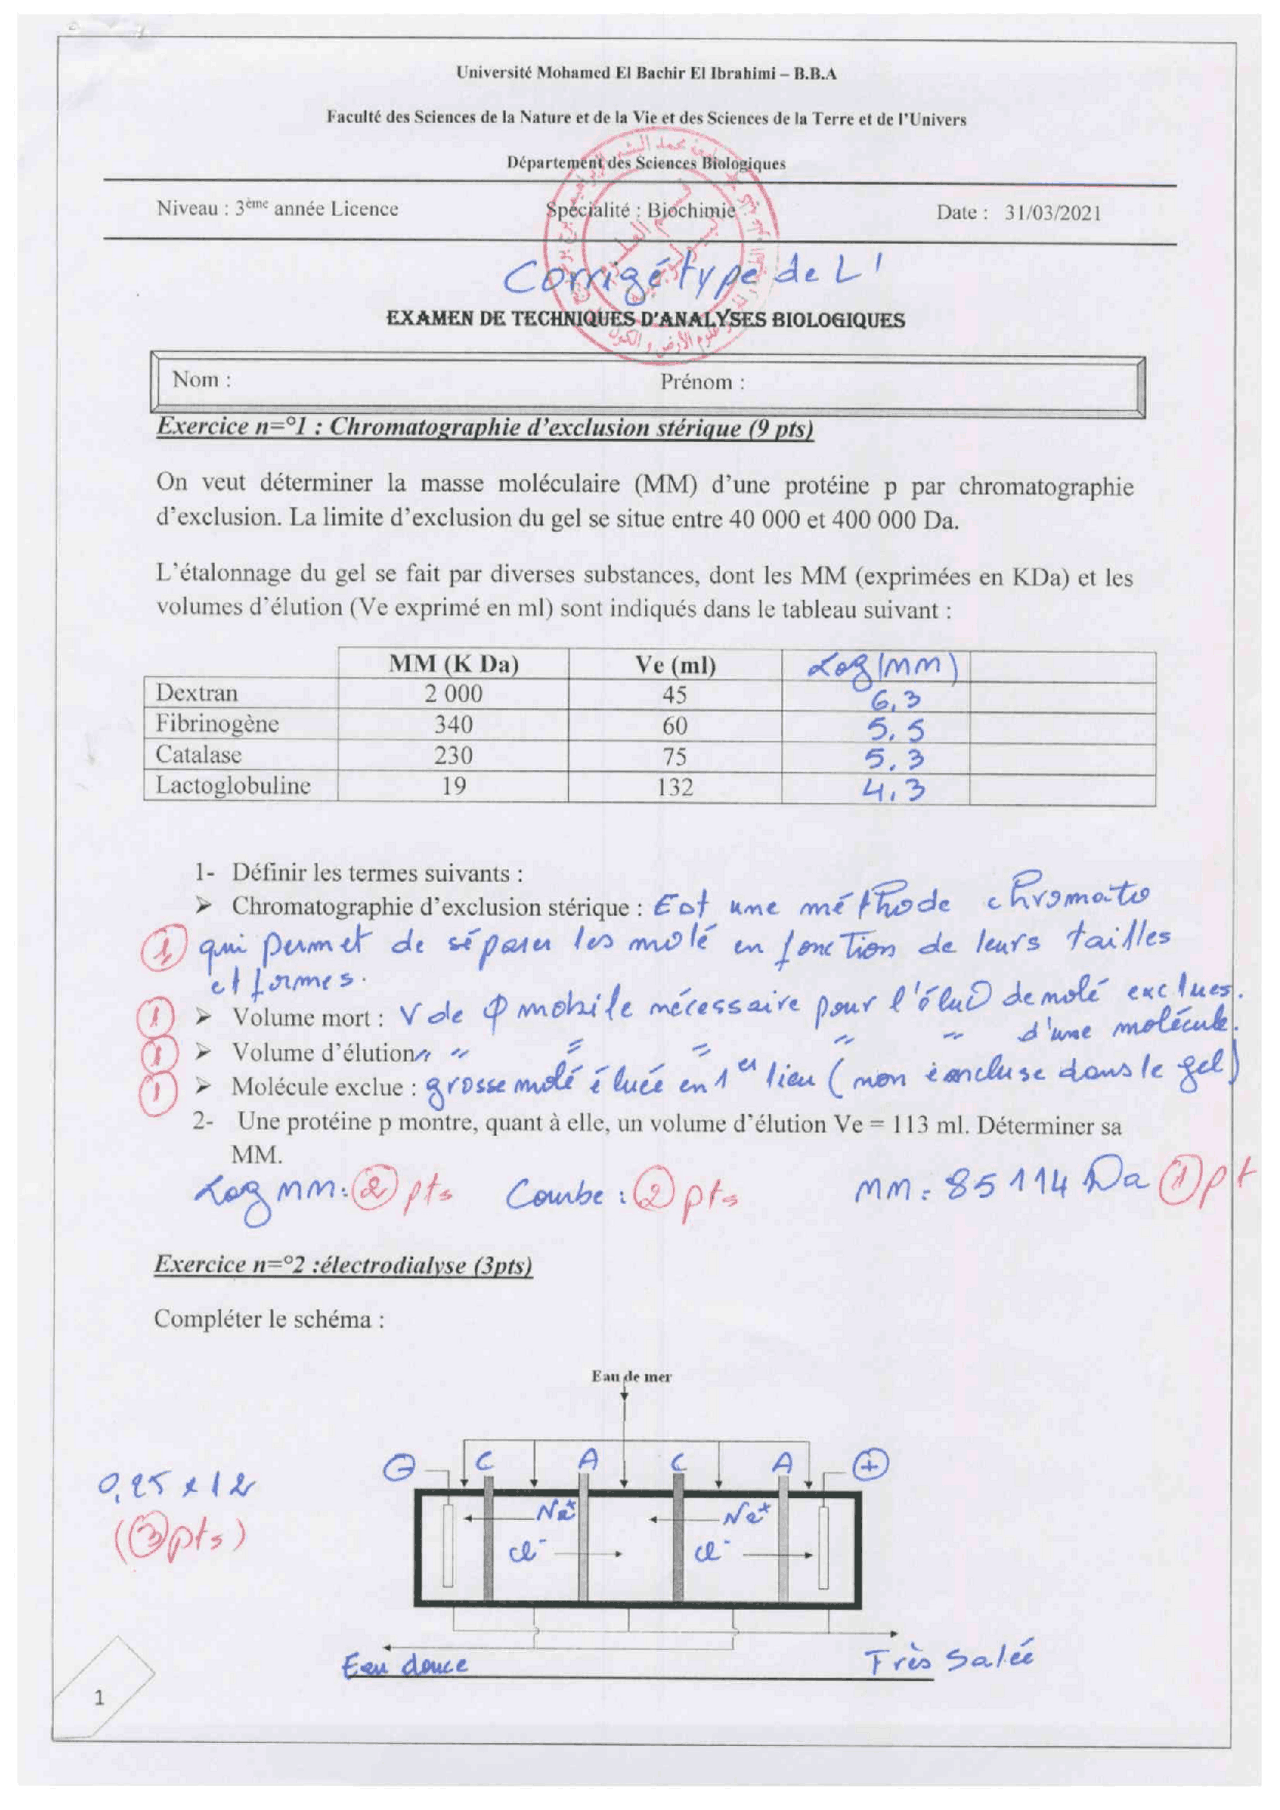 Université Mohamed El Bachir El Ibrahimi – B.B.A
Faculté des Sciences de la Nature et de la Vie et des Sciences de la Terre et de l'Univers
Département des Sciences Biologiques
Niveau : 3ème année Licence Spécialité : Biochimie Date : 31/03/2021
Corrigé type de L'
EXAMEN DE TECHNIQUES D'ANALYSES BIOLOGIQUES
Nom : Prénom :
Exercice n=°1 : Chromatographie d'exclusion stérique (9 pts)
On veut déterminer la masse moléculaire (MM) d'une protéine p par chromatographie
d'exclusion. La limite d'exclusion du gel se situe entre 40 000 et 400 000 Da.
L'étalonnage du gel se fait par diverses substances, dont les MM (exprimées en KDa) et les
volumes d'élution (Ve exprimé en ml) sont indiqués dans le tableau suivant :
MM (K Da) Ve (ml) Log(MM)
Dextran 2 000 45 6,3
Fibrinogène 340 60 5,5
Catalase 230 75 5,3
Lactoglobuline 19 132 4,3
1- Définir les termes suivants :
➢ Chromatographie d'exclusion stérique : Est une méthode chromato
1 qui permet de séparer les molé en fonction de leurs tailles
et formes.
1 ➢ Volume mort : V de φ mobile nécessaire pour l'éluo de molé exclues.
1 ➢ Volume d'élution " " " " " " d'une molécule.
1 ➢ Molécule exclue : grosse molé éluée en 1er lieu (non incluse dans le gel)
2- Une protéine p montre, quant à elle, un volume d'élution Ve = 113 ml. Déterminer sa
MM.
Log MM : 2 pts Courbe : 2 pts MM = 85 114 Da 1 pt
Exercice n=°2 :électrodialyse (3pts)
Compléter le schéma :
Eau de mer
- C A C A +
0,25 x 12
(3 pts)
Na+ Na+
Cl- Cl-
Eau douce Très Salée
1